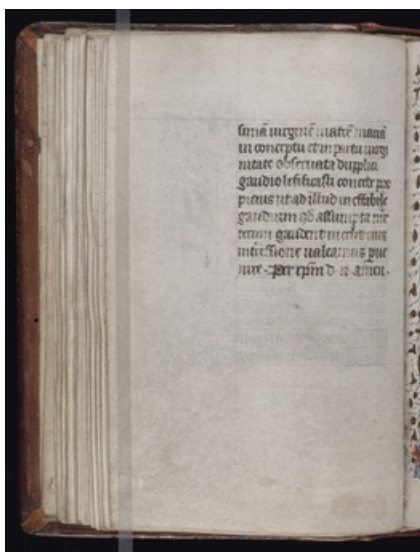 simā uirginē matrē mariā
in conceptu et in partu uirgi
nitate obseruata duplici
gaudio letificasti concede pro
picius ut ad illud ineffabile
gaudium qđ assumpta me
tecum gaudent in celis eius
intercessione ualeamus peruē
nire. Per xp̄m d. n. amen.